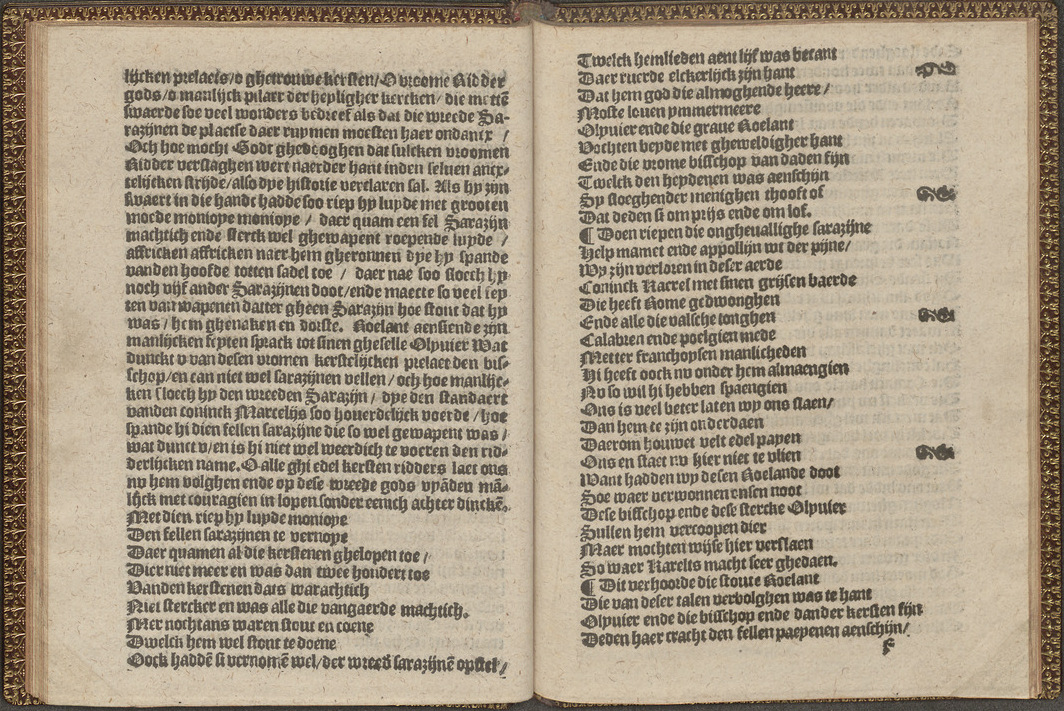 lijcken prelaets/o ghetrouwe kersten/O vroome Ridder
gods/o manlijck pilaer der heyligher kercken/ die mettē
swaerde soe veel wonders bedreef als dat die wreede Sa-
razijnen de plaetse daer ruymen moesten haer ondanix /
Och hoe mocht Godt ghedooghen dat sulcken vroomen
Ridder verslaghen wert naerder hant inden seluen anxt-
telijcken strijde/also dye historie verclaren sal. Als hy zijn
swaert in die handt hadde soo riep hy luyde met grooten
moede monioye monioye / daer quam een fel Sarazijn
machtich ende sterck wel ghewapent roepende luyde /
affricken affricken naer hem gheronnen dye hy spande
vanden hoofde totten sadel toe / daer nae soo sloech hy
noch vijf ander Sarazijnen doot/ende maecte so veel sey
ten van wapenen datter gheen Sarazijn hoe stout dat hy
was/hem ghenaken en dorste. Roelant aensiende zijn
manlijcken feyten sprack tot sinen gheselle Olyuier Wat
dunckt v van desen vromen kerstelijcken prelaet den bis-
schop/en can niet wel sarazijnen vellen/och hoe manlijc-
ken sloech hy den wreeden Sarazijn/dye den standaert
vanden coninck Marcelijs soo houerdelijck voerde/hoe
spande hi dien fellen sarazijne die so wel gewapent was/
wat dunct v/en is hi niet wel weerdich te voeren den rid-
derlijcken name. O alle ghi edel kersten ridders laet ons
nv hem volghen ende op dese wreede gods vyāden mā-
lijck met couragien in lopen sonder eenich achter dinckē.
Met dien riep hy luyde monioye
Den fellen sarazijnen te vernoye
Daer quamen al die kerstenen ghelopen toe/
Dier niet meer en was dan twee hondert toe
Vanden kerstenen dats warachtich
Niet stercker en was alle die vangaerde machtich.
Mer nochtans waren stout en coene
Dwelck hem wel stont te doene
Oock haddē si vernomē wel/der wreed sarazijnē opstel/
Twelck hemlieden aent lijf was becant
Daer ruerde elckerlijck zijn hant
Dat hem god die almoghende heere/
Moste louen ymmermeere
Olyuier ende die graue Roelant
Vochten beyde met gheweldigher hant
Ende die vrome bisschop van daden fijn
Twelck den heydenen was aenschijn
Sy sloeghender menighen thooft of
Dat deden si om prijs ende om lof.
¶ Doen riepen die ongheuallighe sarazijne
Help mamet ende appollijn wt der pijne/
Wy zijn verloren in deser aerde
Coninck Kaerel met sinen grijsen baerde
Die heeft Rome gedwonghen
Ende alle die valsche tonghen
Calabren ende poelgien mede
Metter franchoysen manlicheden
Hi heeft oock nv onder hem almaengien
Nv so wil hi hebben spaengien
Ons is veel beter laten wy ons slaen/
Dan hem te zijn onderdaen
Daerom houwet velt edel papen
Ons en staet nv hier niet te vlien
Want hadden wy desen Roelande doot
Soe waer verwonnen onsen noot
Dese bisschop ende dese stercke Olyuier
Sullen hem vercoopen dier
Maer mochten wijse hier verslaen
So waer Karelts macht seer ghedaen.
¶ Dit verhoorde die stoute Roelant
Die van deser talen verbolghen was te hant
Olyuier ende die bisschop ende dander kersten fijn
Deden haer cracht den fellen paepenen aenschijn/
f